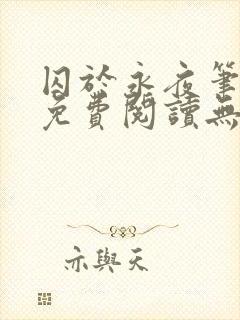 囚於永夜筆
免費閱讀無
亦與天